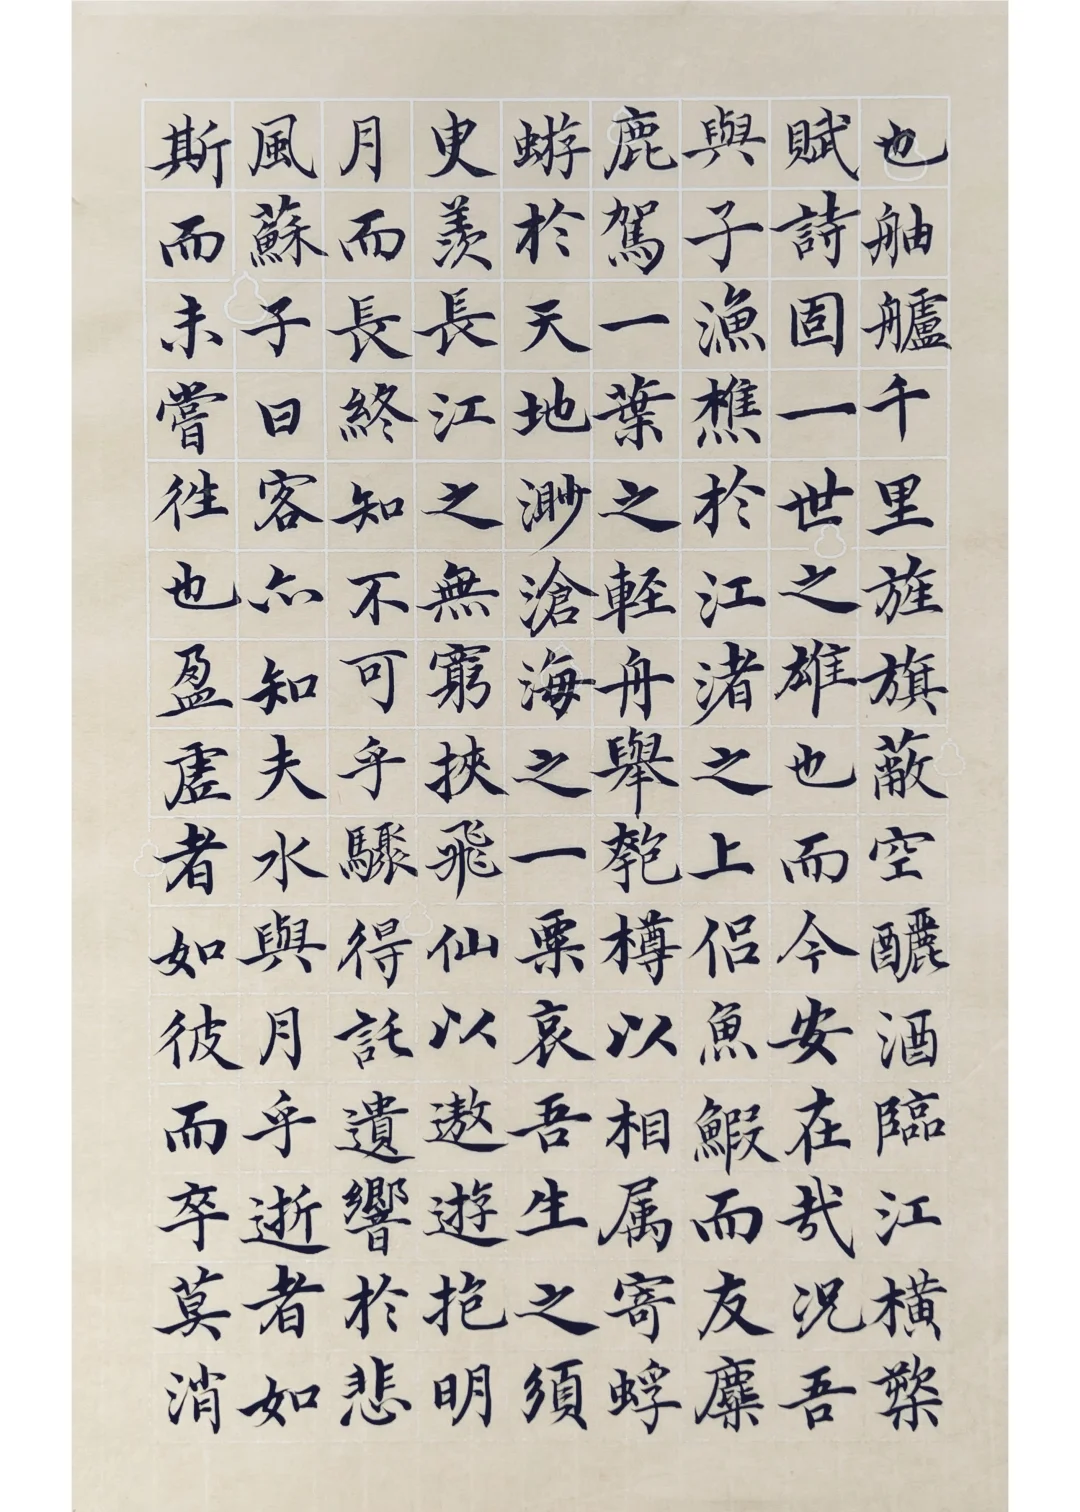 也舳艫千里旌旗蔽空釃酒臨江橫槊
賦詩固一世之雄也而今安在哉況吾
與子漁樵於江渚之上侶魚鰕而友麋
鹿駕一葉之輕舟舉匏樽以相属寄蜉
蝣於天地渺滄海之一粟哀吾生之須
臾羨長江之無窮挾飛仙以遨遊抱明
月而長終知不可乎驟得託遺響於悲
風蘇子曰客亦知夫水與月乎逝者如
斯而未嘗往也盈虛者如彼而卒莫消